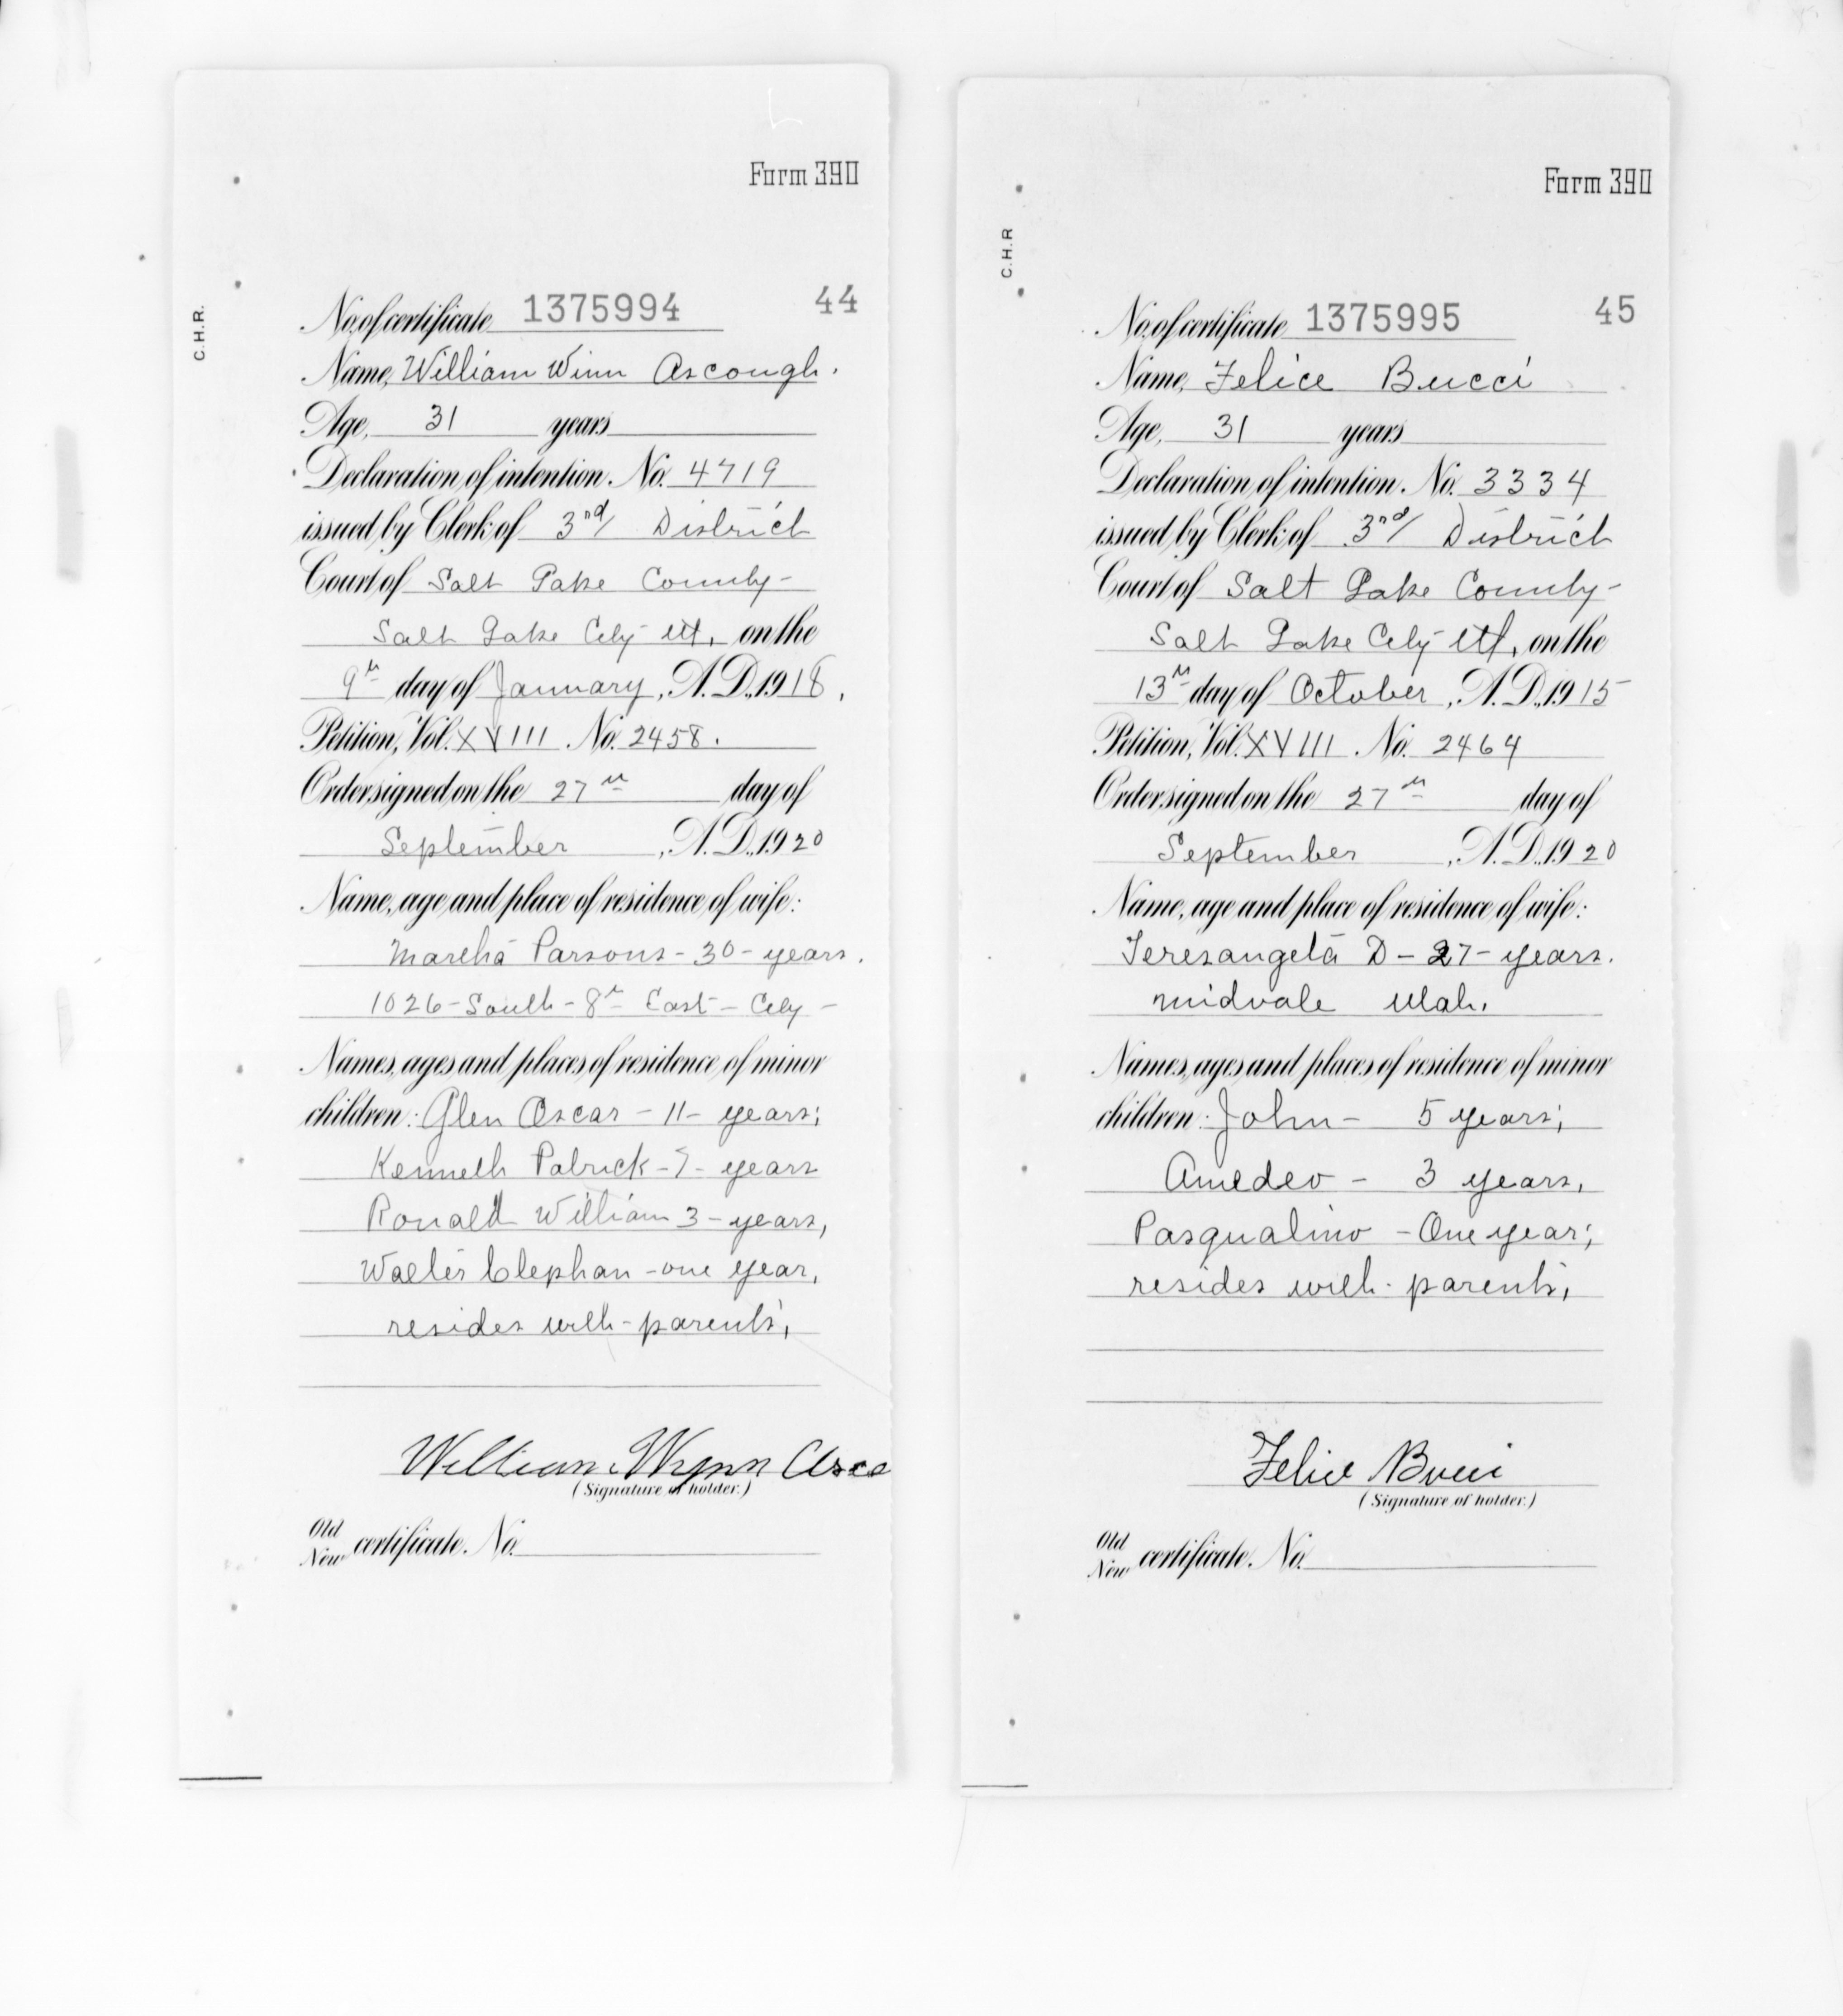 Form 390
C.H.R.
No. of certificate 1375994 44
Name, William Winn Ascough.
Age, 31 years
Declaration of intention. No. 4719
issued by Clerk of 3rd District
Court of Salt Lake County-
Salt Lake City Ut, on the
9th day of January, A.D. 1918.
Petition, Vol. XVIII No. 2458.
Order signed on the 27th day of
September, A.D. 1920
Name, age and place of residence of wife:
Martha Parsons - 30 - years.
1026 - South - 8th East - City -
Names, ages and places of residence of minor
children: Glen Oscar - 11 - years;
Kenneth Patrick - 7 - years
Ronald William 3 - years,
Walter Clephan - one year,
resides with - parents,
William Wynn Asco
(Signature of holder.)
Old
New certificate. No.
Form 390
C.H.R
No. of certificate 1375995 45
Name, Felice Bucci
Age, 31 years
Declaration of intention. No. 3334
issued by Clerk of 3rd District
Court of Salt Lake County-
Salt Lake City Ut, on the
13th day of October, A.D. 1915
Petition, Vol. XVIII No. 2464
Order signed on the 27th day of
September, A.D. 1920
Name, age and place of residence of wife:
Teresangela D - 27 - years.
Midvale Utah.
Names, ages and places of residence of minor
children: John - 5 years;
Amedeo - 3 years,
Pasqualino - One year;
resides with - parents,
Felice Bucci
(Signature of holder.)
Old
New certificate. No.